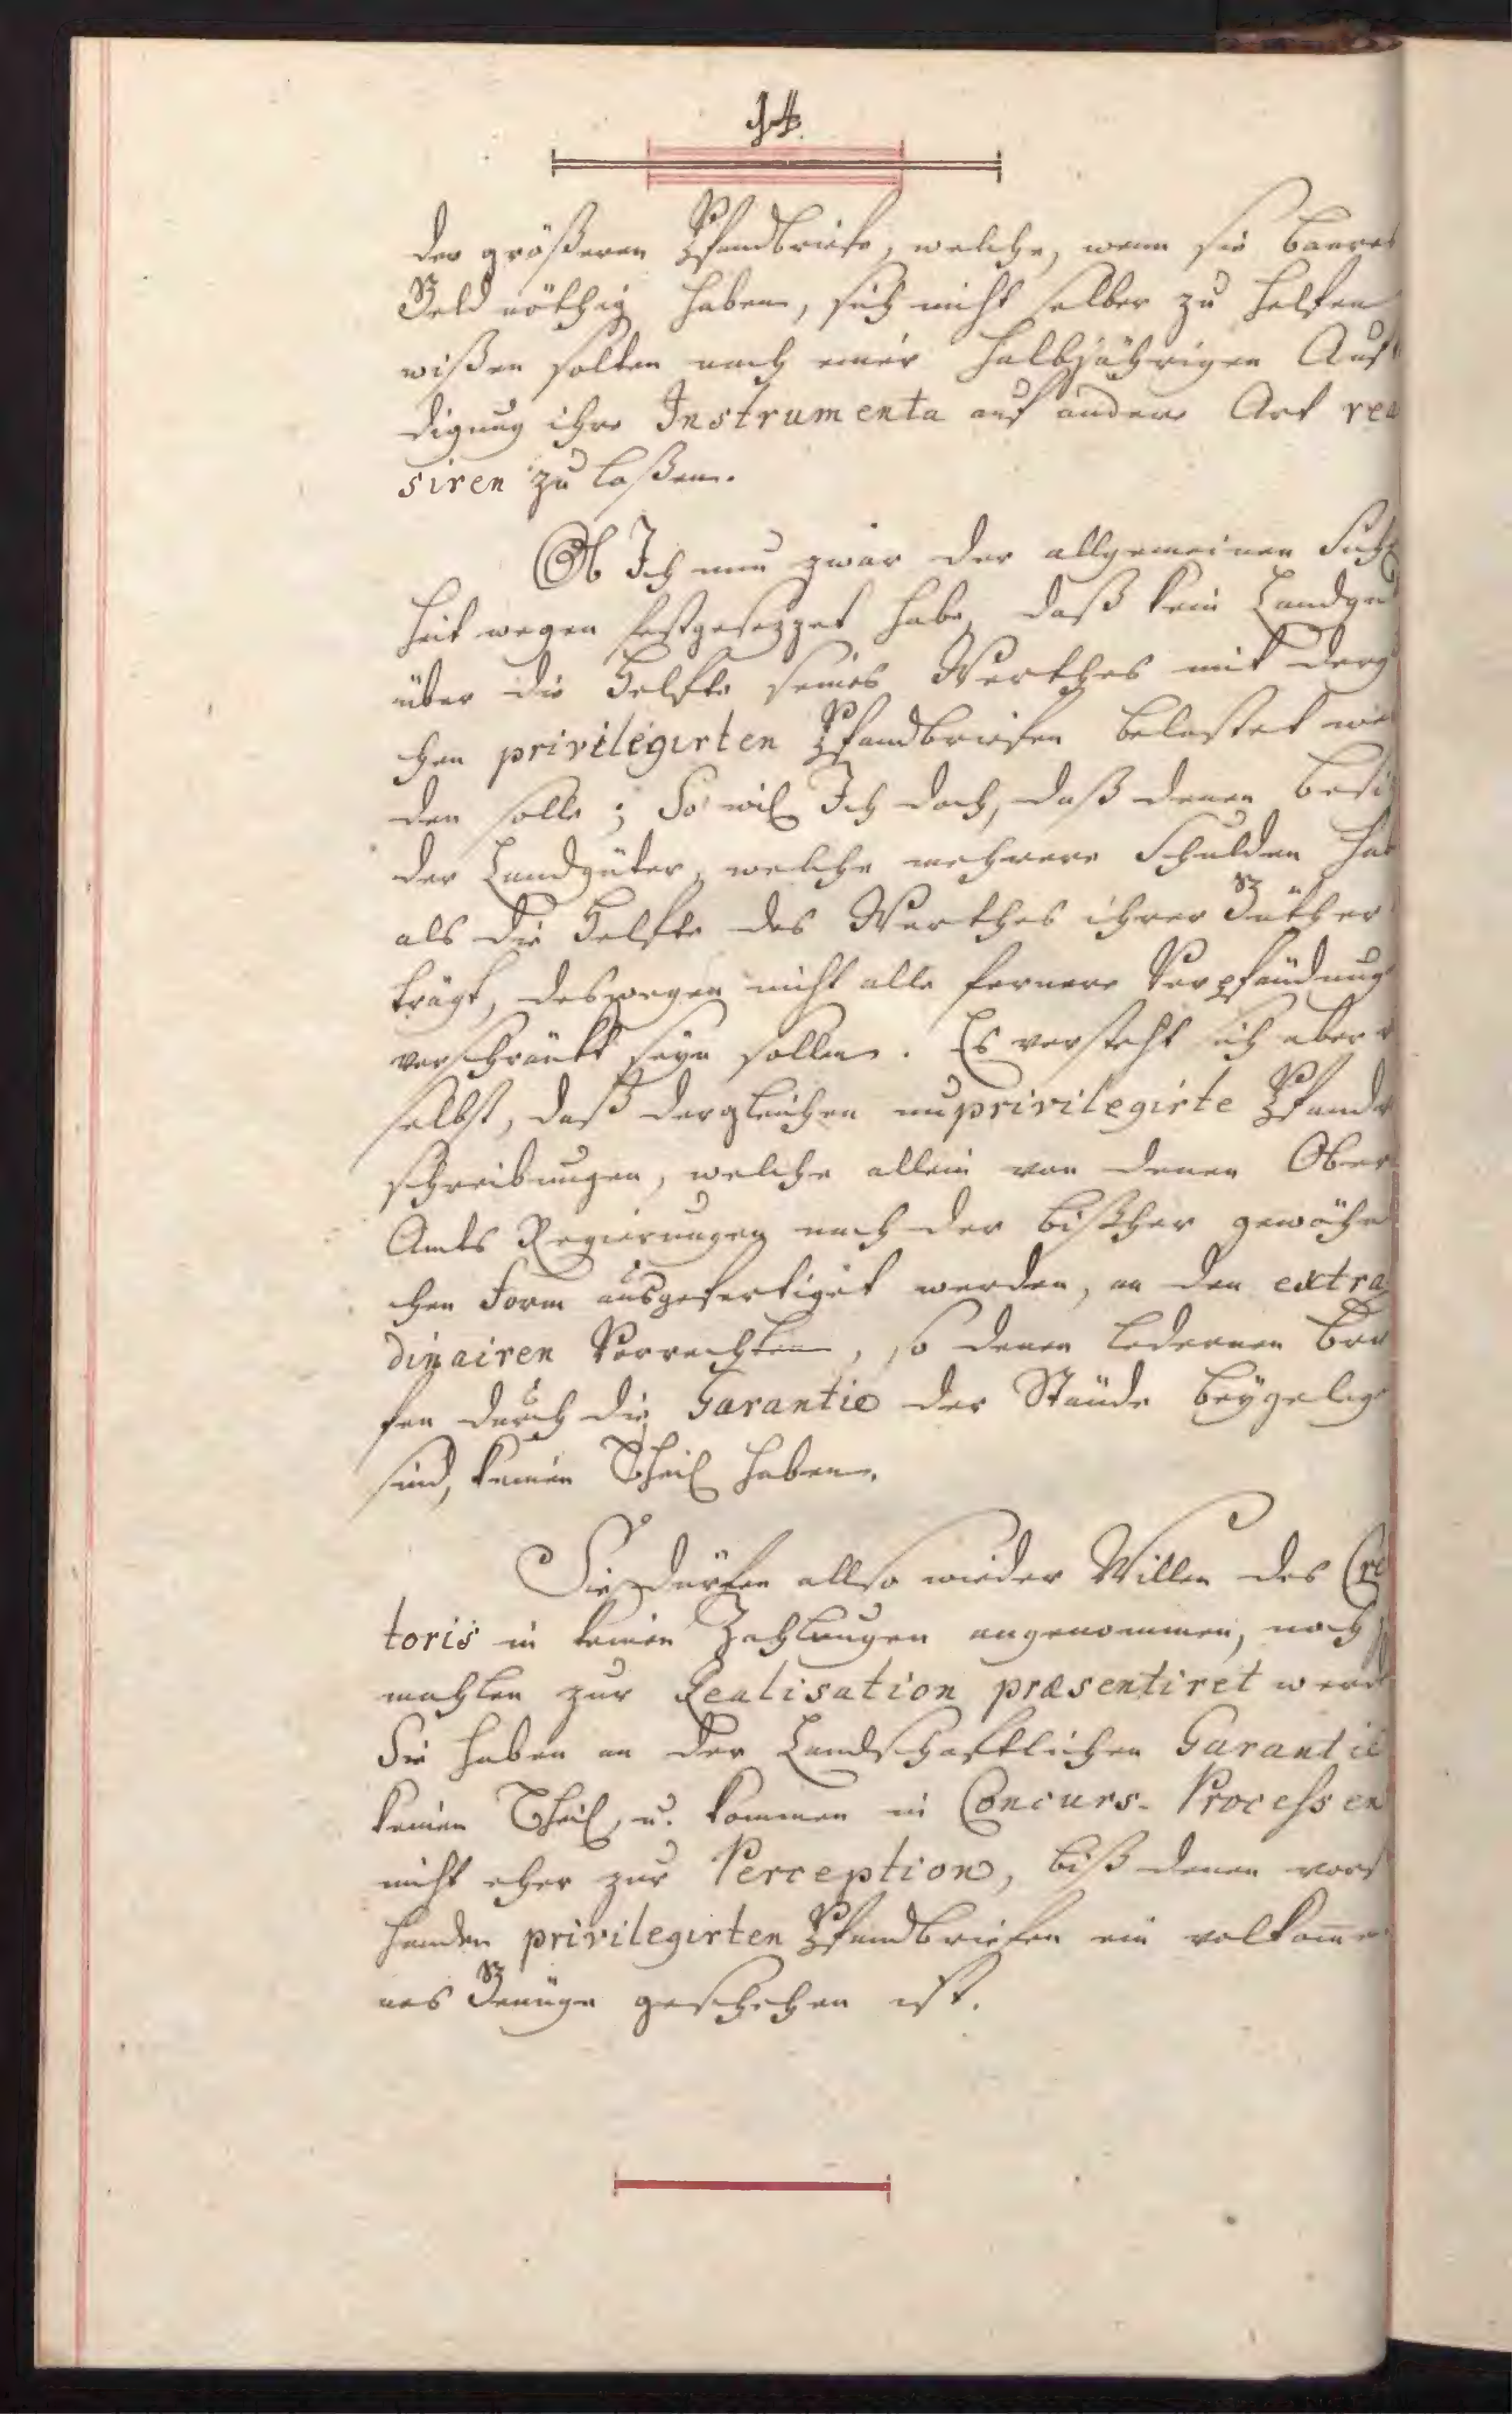 14.
der größeren Pfandbriefe, welche, wenn sie baares
Geld nöthig haben, sich nicht selber zu helfen
wißen solten nach einer halbjährigen Auf
digung ihre Instrumenta auf andere Art rea
siren zu laßen.
Ob Ich nun zwar der allgemeinen Sich
heit wegen festgesezzet habe, daß kein Landgu
über die Helfte seines Werthes mit derg
chen privilegirten Pfandbriefen belastet wer
den solle; So wil Ich doch, daß denen Besi
der Landgüter, welche mehrere Schulden hab
als die Helfte des Werthes ihrer Güther
trägt, deswegen nicht alle fernere Verpfändung
verschränkt seyn sollen. Es versteht sich aber v
selbst, daß dergleichen unprivilegirte Pfandv
schreibungen, welche allein von denen Ober
Amts Regierungen nach der bißher gewöhn
chen Form ausgefertiget werden, an den extra
dinairen Vorrechten, so denen ledernen Brie
fen durch die Garantie der Stände beygeleg
sind, keinen Theil haben.
Sie dürfen allso wieder Willen des Cre
toris in keinen Zahlungen angenommen, noch j
mahlen zur Realisation præsentiret werd
Sie haben an der Landschaftlichen Garantie
keinen Theil, u. kommen in Concurs-Processen
nicht eher zur Perception, biß denen vor
handen privilegirten Pfandbriefen ein volkom̅e
nes Genüge geschehen ist.